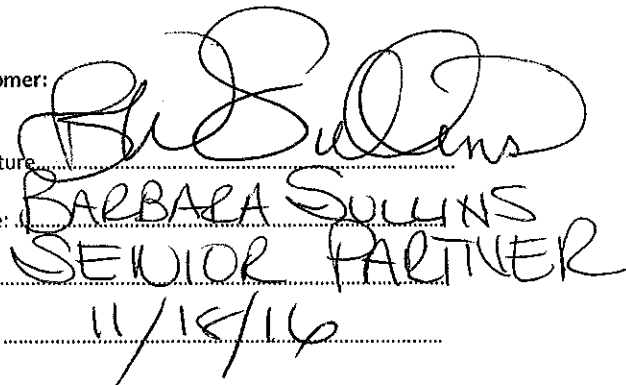 omer:
ture
e: BARBARA SULLINS
SENIOR PARTNER
11/18/16